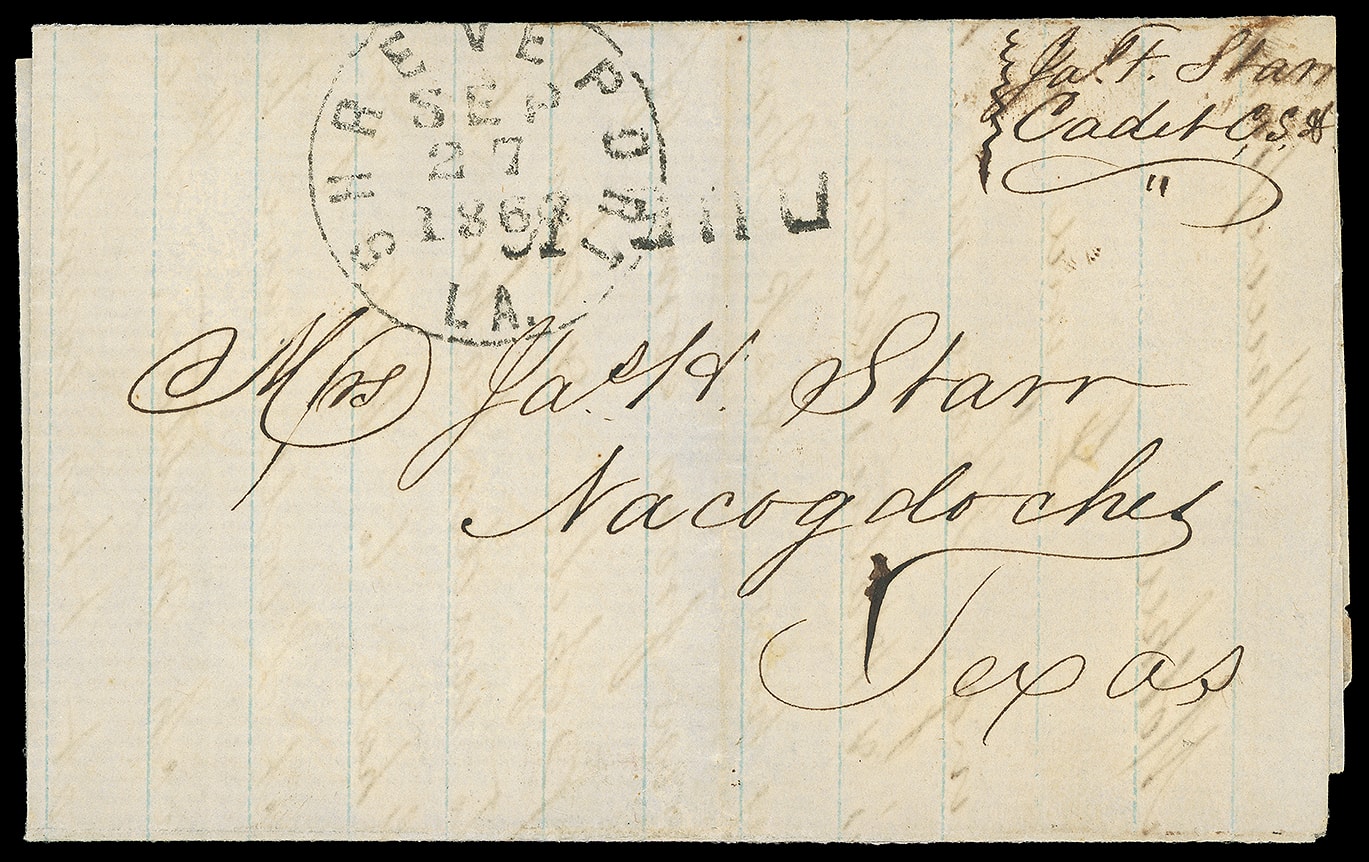 SHREVEPORT
SEP
27
LA.
Jas. F. Starr
Cadet C.S.A
Mrs Jas. H. Starr
Nacogdoches
Texas